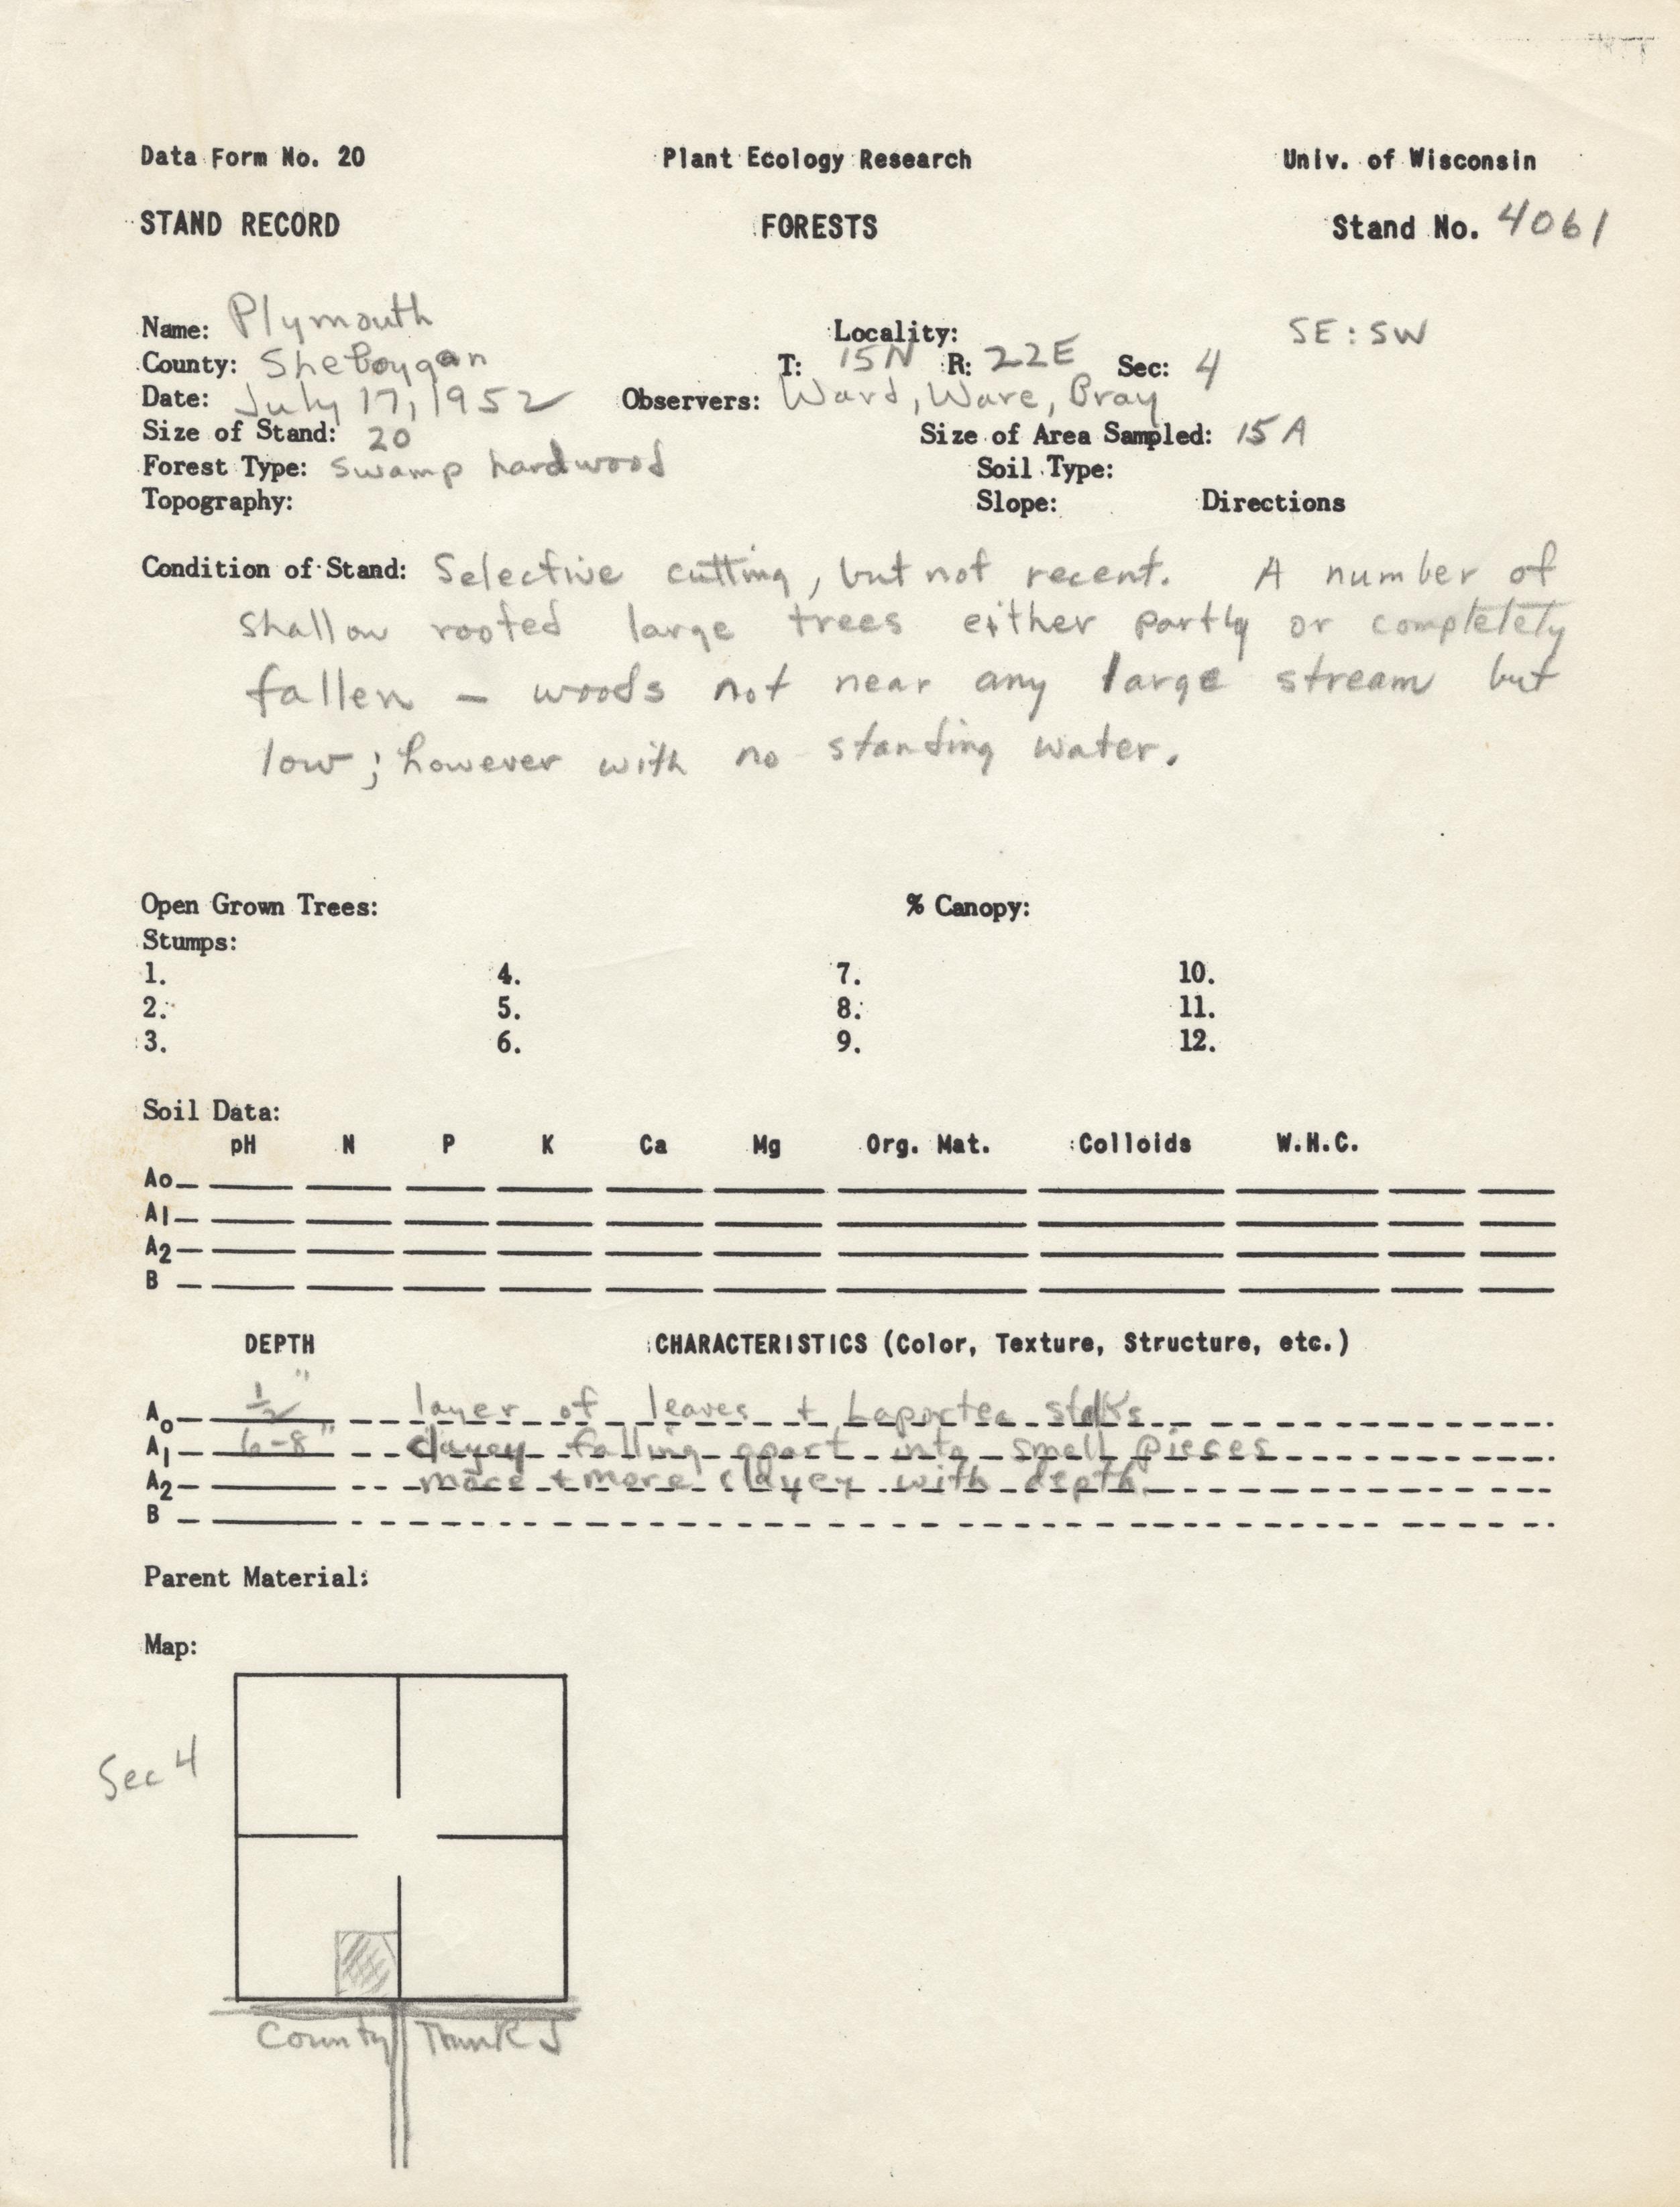 Data Form No. 20 Plant Ecology Research Univ. of Wisconsin
STAND RECORD FORESTS Stand No. 4061
Name: Plymouth Locality: SE:SW
County: Sheboygan T: 15N R: 22E Sec: 4
Date: July 17, 1952 Observers: Ward, Ware, Bray
Size of Stand: 20 Size of Area Sampled: 15 A
Forest Type: Swamp hardwood Soil Type:
Topography: Slope: Directions
Condition of Stand: Selective cutting, but not recent. A number of
shallow rooted large trees either partly or completety
fallen - woods not near any large stream but
low; however with no standing water.
Open Grown Trees: % Canopy:
Stumps:
1. 4. 7. 10.
2. 5. 8. 11.
3. 6. 9. 12.
Soil Data:
pH N P K Ca Mg Org. Mat. Colloids W.H.C.
A0
A1
A2
B
DEPTH CHARACTERISTICS (Color, Texture, Structure, etc.)
A0 1/2" layer of leaves + Laportea stalks
A1 6-8" clayey falling apart into small pieces
A2 more + more clayey with depth.
B
Parent Material:
Map:
Sec 4
County Trunk J